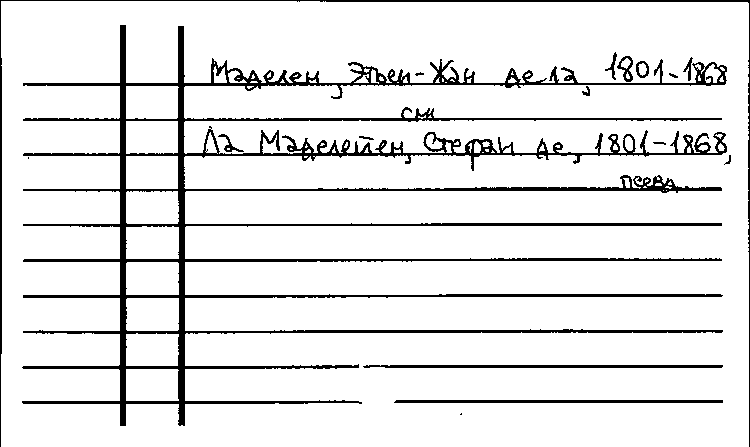 Маделен, Этьен-Жан де ла, 1801-1868
см.
Ла Маделетен, Стефан де, 1801-1868,
псевд.